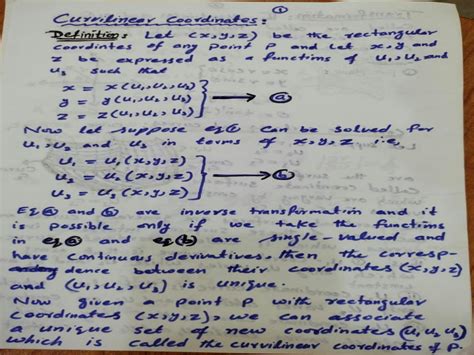 ①
Curvilinear Coordinates:
Definition: Let (x,y,z) be the rectangular
coordintes of any Point P and let x,y and
z be expressed as a functims of u₁,u₂ and
u₃ such that
x = x(u₁,u₂,u₃)
y = y(u₁,u₂,u₃) → ⓐ
z = z(u₁,u₂,u₃)
Now let suppose eq ⓐ can be solved for
u₁,u₂ and u₃ in terms of x,y,z i.e,
u₁ = u₁(x,y,z)
u₂ = u₂(x,y,z) → ⓑ
u₃ = u₃(x,y,z)
Eq ⓐ and ⓑ are inverse transformation and it
is possible only if we take the functims
in eq ⓐ and eq ⓑ are single-valued and
have continuous derivatives, then the corresp-
dence between their coordinates (x,y,z)
and (u₁,u₂,u₃) is unique.
Now given a point P with rectangular
coordinates (x,y,z), we can associate
a unique set of new coordinates (u₁ u₂ u₃)
which is called the curvilinear coordinates of P.